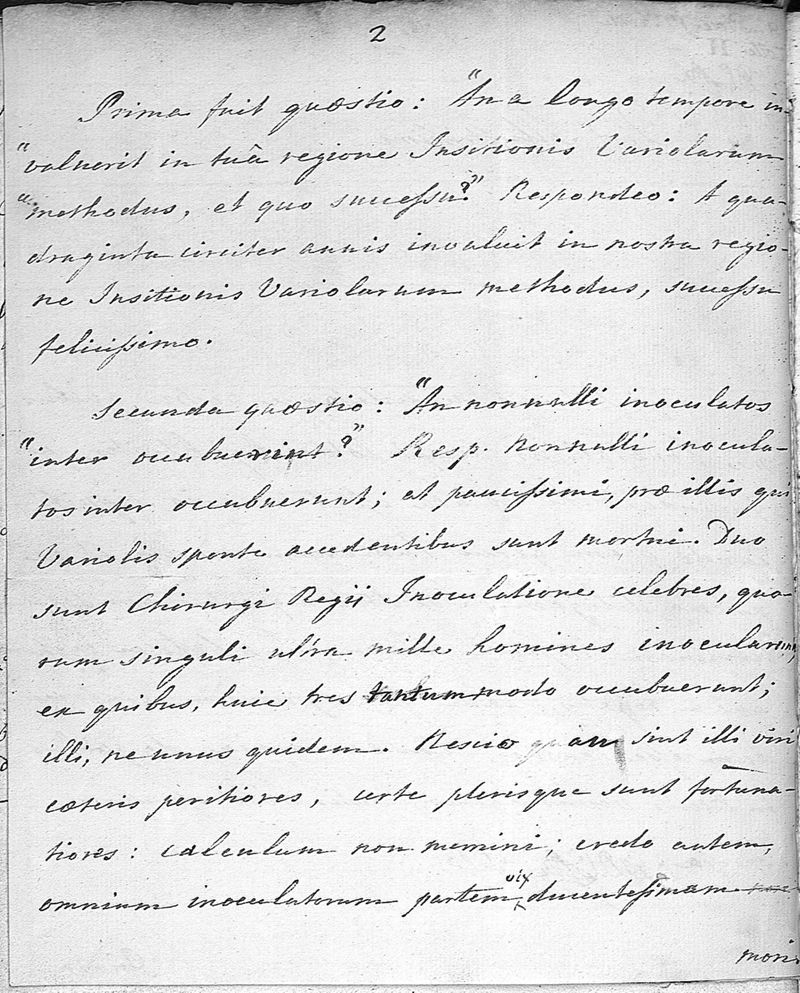 2
Prima fuit quæstio: "An a longo tempore in-
"valuerit in tuâ regione Insitionis Variolarum
"methodus, et quo successu?" Respondeo: A qua-
draginta circiter annis invaluit in nostra regio-
ne Insitionis Variolarum methodus, successu
felicissimo.
Secunda quæstio: "An nonnulli inoculatos
"inter occubuerint?" Resp. Nonnulli inocula-
tos inter occubuerunt; et paucissimi, præ illis qui
Variolis sponte accedentibus sunt mortui. Duo
sunt Chirurgi Regii Inoculatione celebres, quo-
rum singuli ultra mille homines inocularunt,
ex quibus, huic tres tantummodo occubuerunt;
illi, ne unus quidem. Nescio an sint illi viri
cæteris peritiores, certe plerisque sunt fortuna-
tiores: calculum non memini; credo autem,
omnium inoculatorum partem vix ducentessimam
mori.